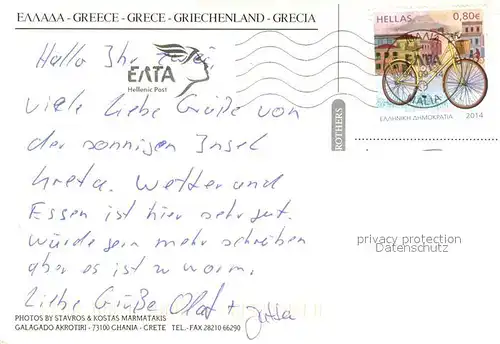 ΕΛΛΑΔΑ - GREECE - GRECE - GRIECHENLAND - GRECIA
HELLAS 0,80€
ΕΛΤΑ
Hellenic Post
ΕΛΛΗΝΙΚΗ ΔΗΜΟΚΡΑΤΙΑ 2014
ROTHERS
Hallo Ihr
viele liebe Grüße von
der sonnigen Insel
Kreta. Wetter und
Essen ist hier sehr gut.
Würde gern mehr schreiben
aber es ist zu warm.
Liebe Grüße Olaf + Jutta
privacy protection
Datenschutz
PHOTOS BY STAVROS & KOSTAS MARMATAKIS
GALAGADO AKROTIRI - 73100 CHANIA - CRETE TEL.-FAX 28210 66290